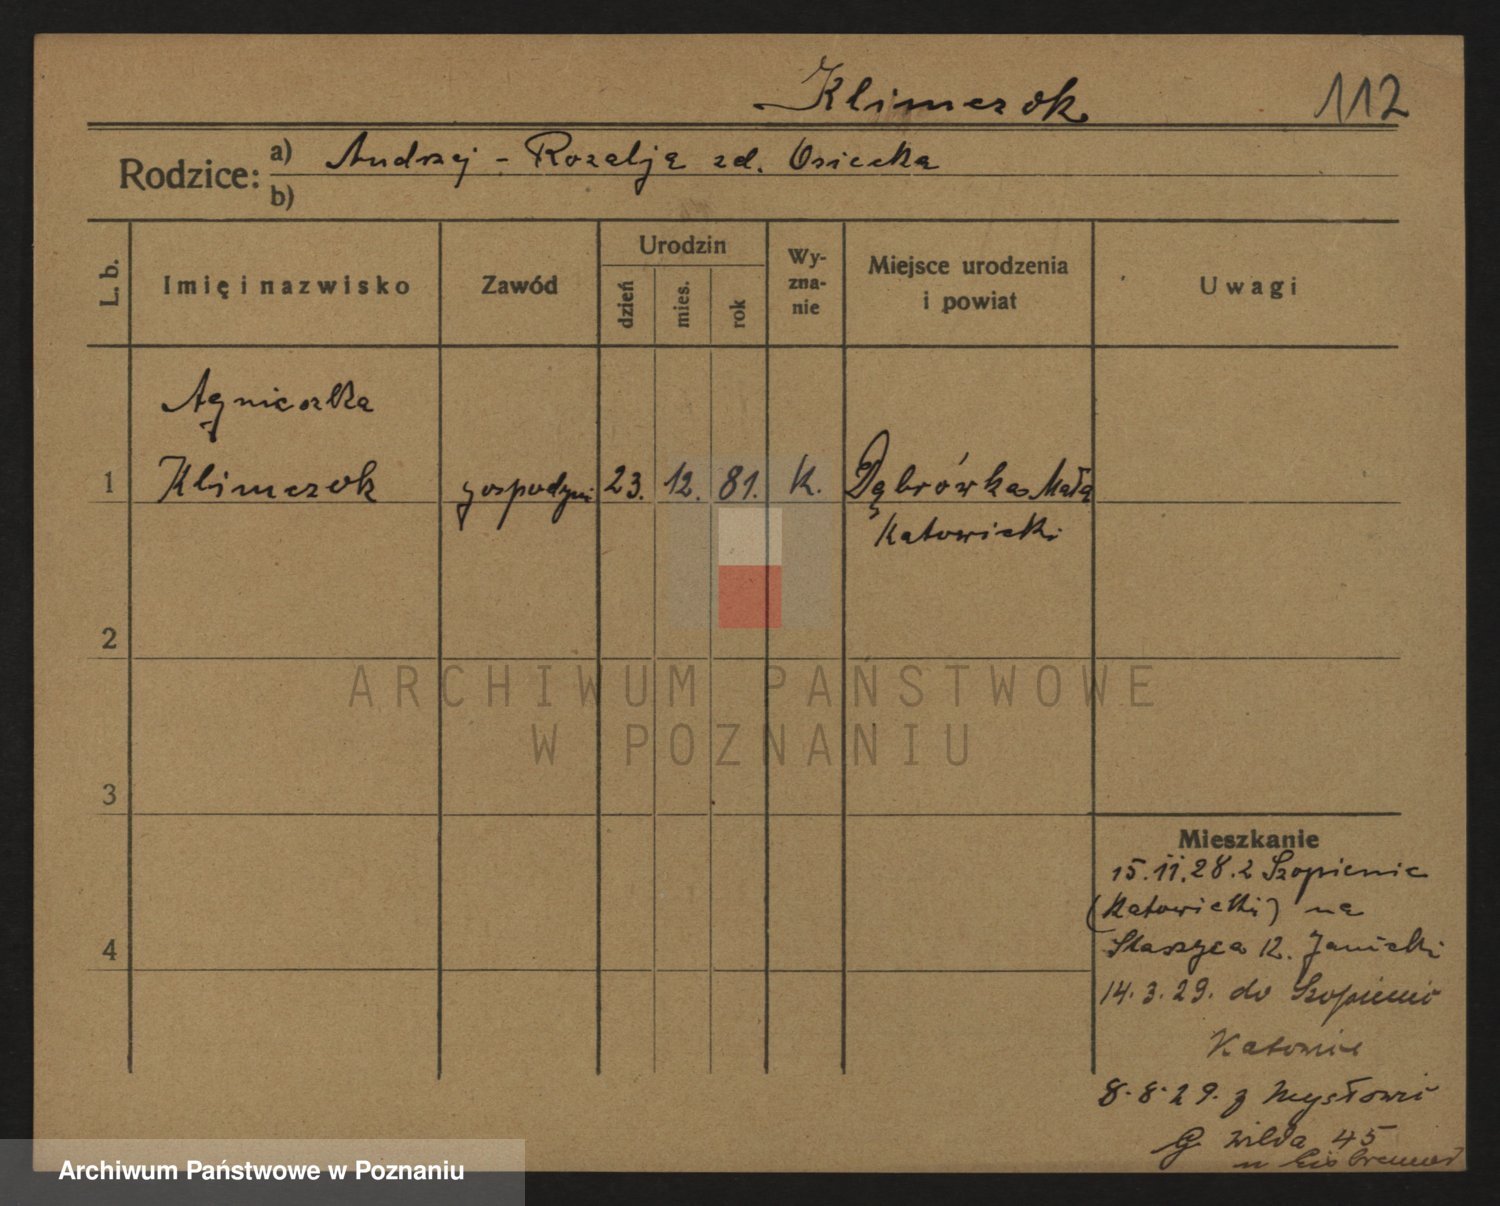 Klimczok 112
Rodzice: a) Andrzej - Rozalja zd. Osiecka
b)
L. b. Imię i nazwisko Zawód Urodzin dzień mies. rok Wy-zna-nie Miejsce urodzenia i powiat Uwagi
Agnieszka
1 Klimczok gospodyni 23. 12. 81. K. Dąbrówka Mała
Katowicki
2
ARCHIWUM PAŃSTWOWE
W POZNANIU
3
Mieszkanie
15.11.28. z Szopienic
(Katowicki) na
4
Staszyca 12. Janicki
14.3.29. do Szopienic
Katowice
8.8.29. z Mysłowic
G. Wilda 45
u
Archiwum Państwowe w Poznaniu